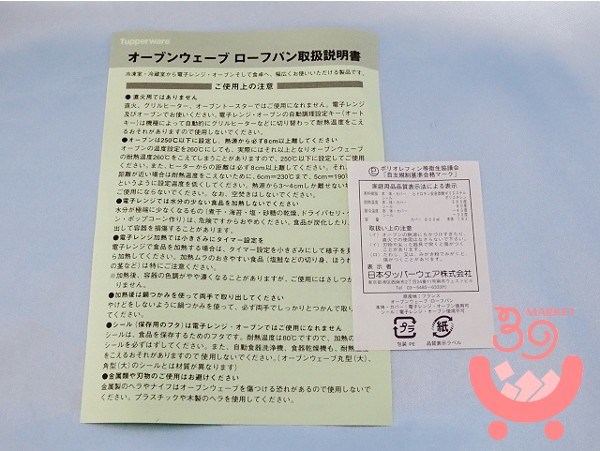 Tupperware
オーブンウェーブ ローフパン取扱説明書
冷凍室・冷蔵室から電子レンジ・オーブンそして食卓へ、幅広くお使いいただける製品です。
ご使用上の注意
● 直火用ではありません
直火、グリルヒーター、オーブントースターではご使用になれません。電子レンジ
及びオーブンでお使いください。電子レンジ・オーブンの自動調理設定キー(オート
キー)は機種によって自動的にグリルヒーターなどに切り替わって耐熱温度をこえ
るおそれがありますので使用しないでください。
●オーブンは250℃以下に設定し、熱源から必ず8cm以上離してください
オーブンの温度設定を260℃にしても、実際にはそれ以上となりオーブンウェーブ
の耐熱温度260℃をこえてしまうことがありますので、250℃以下に設定してご使用
ください。また、ヒーターからの距離は必ず8cm以上離してください。それ以下の
距離が近い場合は耐熱温度をこえないために、6cm=230℃まで、5cm=190℃
というように設定温度を低くしてください。熱源から3〜4cmしか離せない場合は
ご使用にならないでください。なお、空焚きはしないでください。
●電子レンジでは水分の少ない食品を加熱しないでください
水分が極端に少なくなるもの(煮干・海苔・塩・砂糖の乾燥、ドライパセリ・
ン・ポップコーン作り)は、危険ですからおやめください。食品が炭化したり、
出して容器を損傷することがあります。
●電子レンジ加熱では小きざみにタイマー設定を
電子レンジで食品を加熱する場合は、タイマー設定を小きざみにして様子を
ら加熱してください。加熱ムラのおきやすい食品(塩鮭などの切り身、ほうれ
の茎など)は特にご注意ください。
※加熱後、容器の色調がやや濃くなることがありますが、ご使用にはさしつか
りません。
●加熱後は鍋つかみを使って両手で取り出してください
やけどをしないように鍋つかみを使って、必ず両手でしっかりとつかんで取り
ください。
●シール(保存用のフタ)は電子レンジ・オーブンではご使用になれません
シールは、食品を保存するためのフタです。耐熱温度は80℃ですので、加熱の
シールを必ずはずしてください。また、自動食器洗浄機、食器乾燥機も、耐熱温度
をこえるおそれがありますので使用しないでください。(オーブンウェーブ丸型(大)、
角型(大)のシールとは材質が異なります)
●金属類や刃物のご使用はお避けください
金属製のヘラやナイフはオーブンウェーブを傷つける恐れがあるので使用しないで
ください。プラスチックや木製のヘラを使用してください。
ポリオレフィン等衛生協議会
「自主規制基準合格マーク」
家庭用品品質表示法による表示
取扱い上の注意
表示者
日本タッパーウェア株式会社
原産地:フランス
オーブンウェーブ ローフパン
プラ
紙
包装 PE
品質表示ラベル
MARKET
39